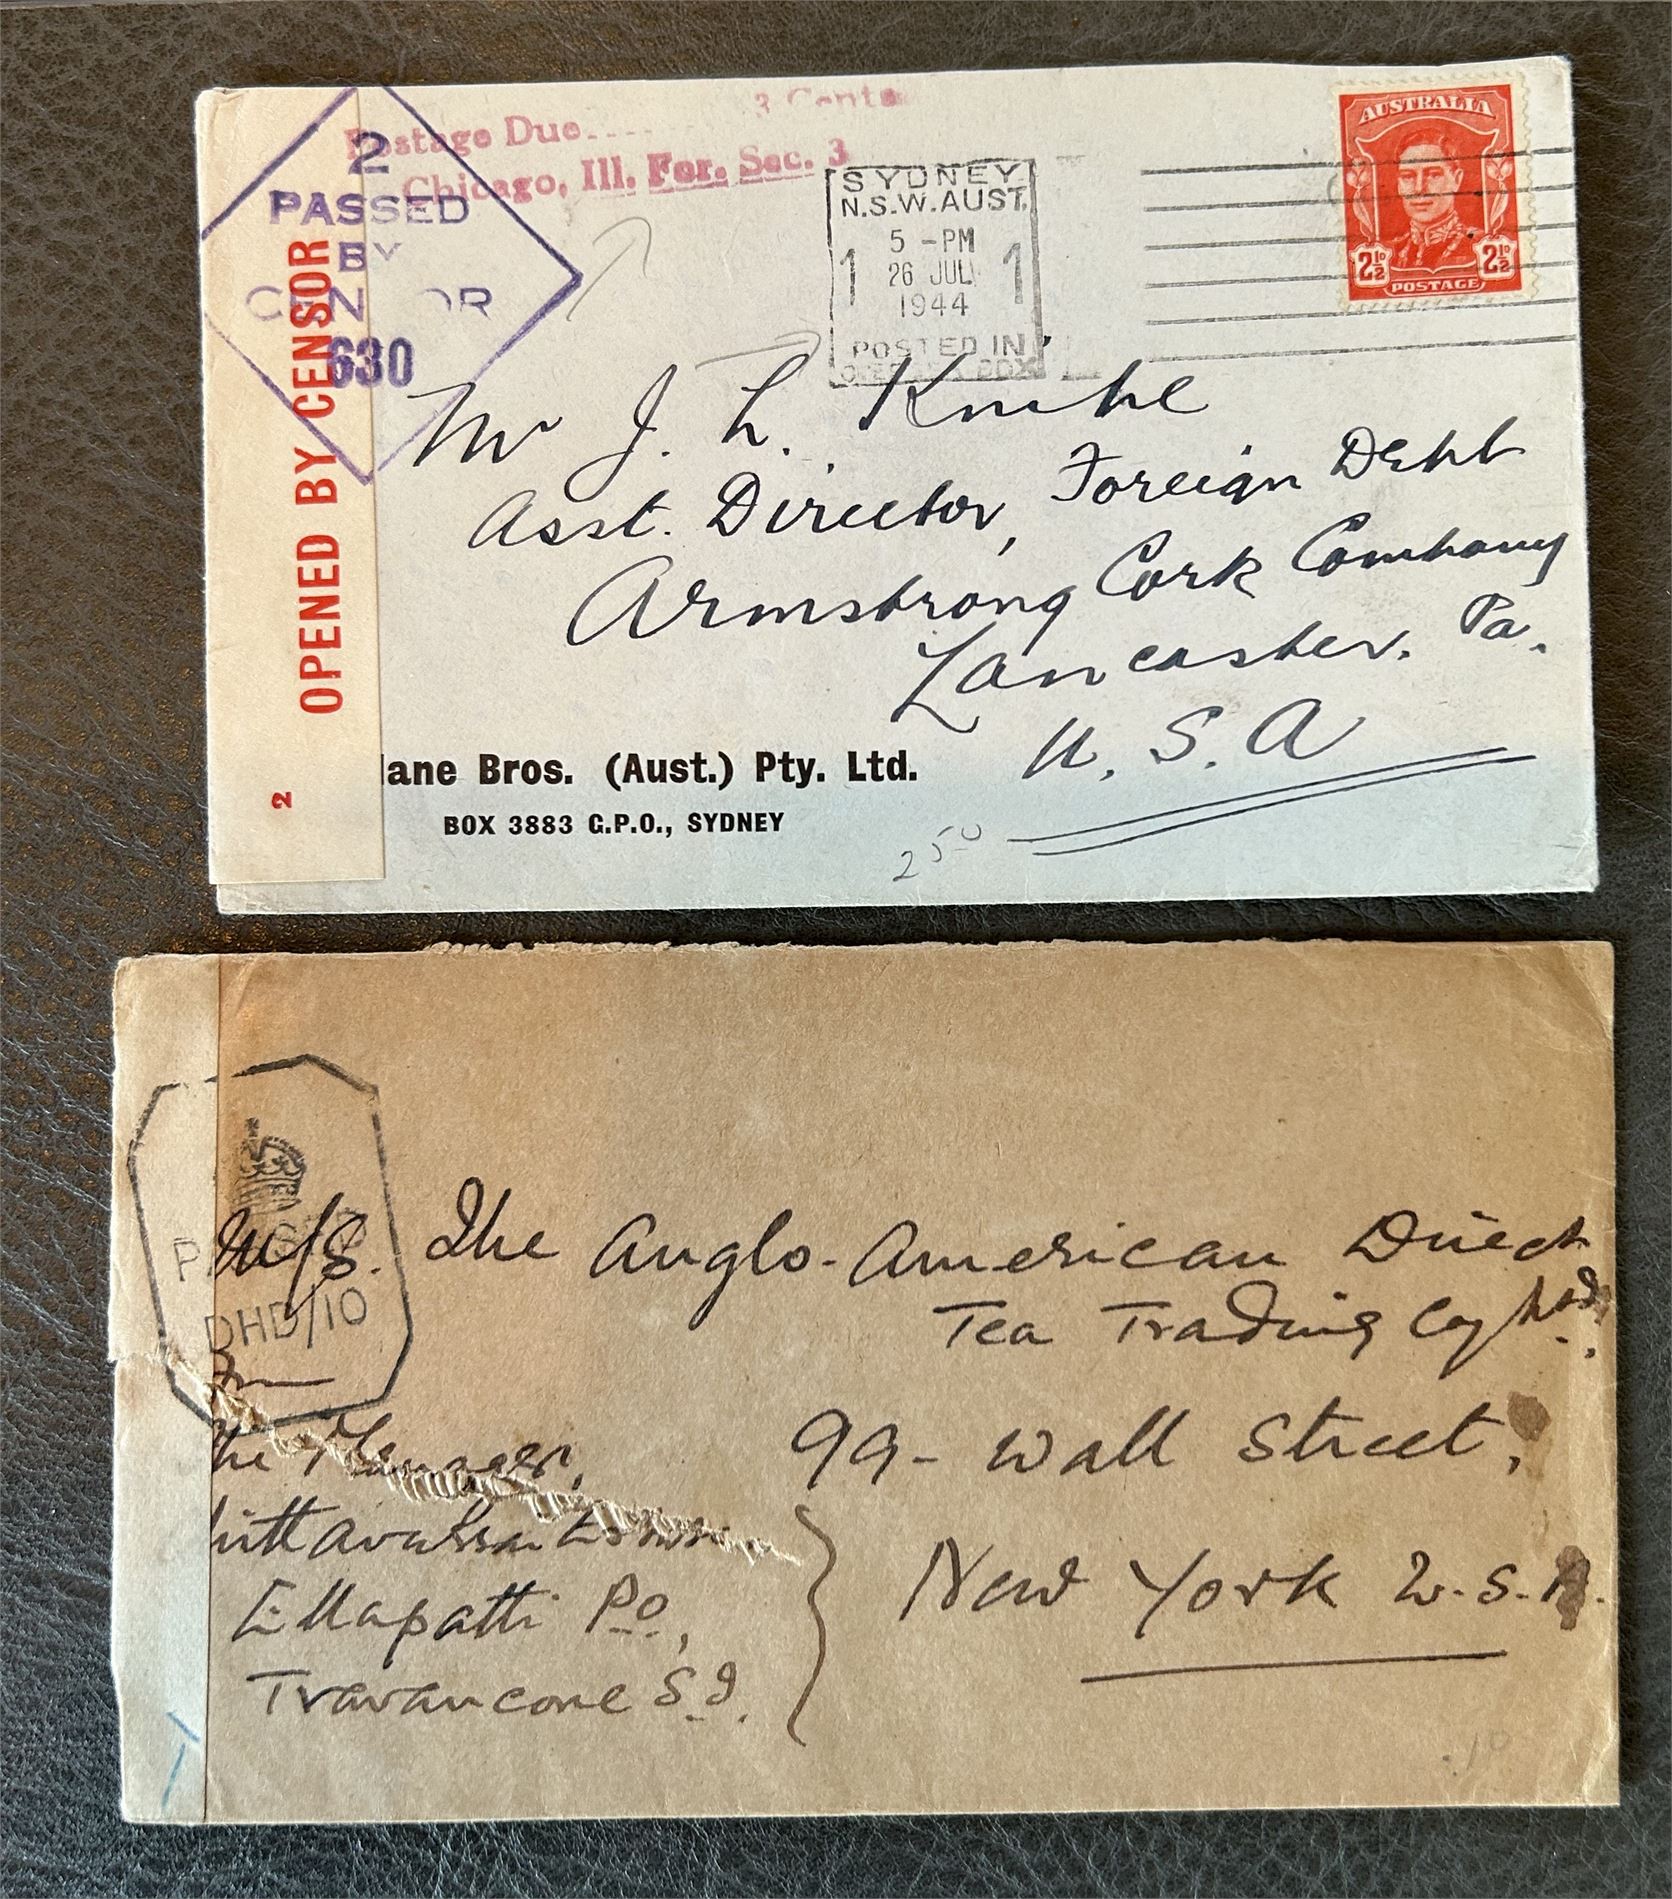 Postage Due........ 3 Cents
Chicago, Ill. For. Sec. 3
2
PASSED
BY
CENSOR
630
OPENED BY CENSOR
2
SYDNEY
N.S.W.AUST.
5 -PM
1 26 JUL 1
1944
POSTED IN
BOX
AUSTRALIA
2½D 2½D
POSTAGE
Mr J. L.
Asst. Director, Foreign Dept
Armstrong Cork Company
Lancaster. Pa.
U. S. A
lane Bros. (Aust.) Pty. Ltd.
BOX 3883 G.P.O., SYDNEY
250
DHD/10
M/S. The Anglo-American Direct
Tea Trading Coy Ltd.
99- Wall Street,
New York U.S.A.
the Manager,
Ellapatti P.O,
Travancore S.I.
T
.10